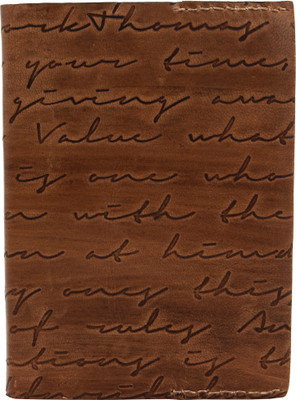 ork Thomas
your time,
giving awa
Value what
is one who
with the
n at hims
y ones this
of rules An
ations is th